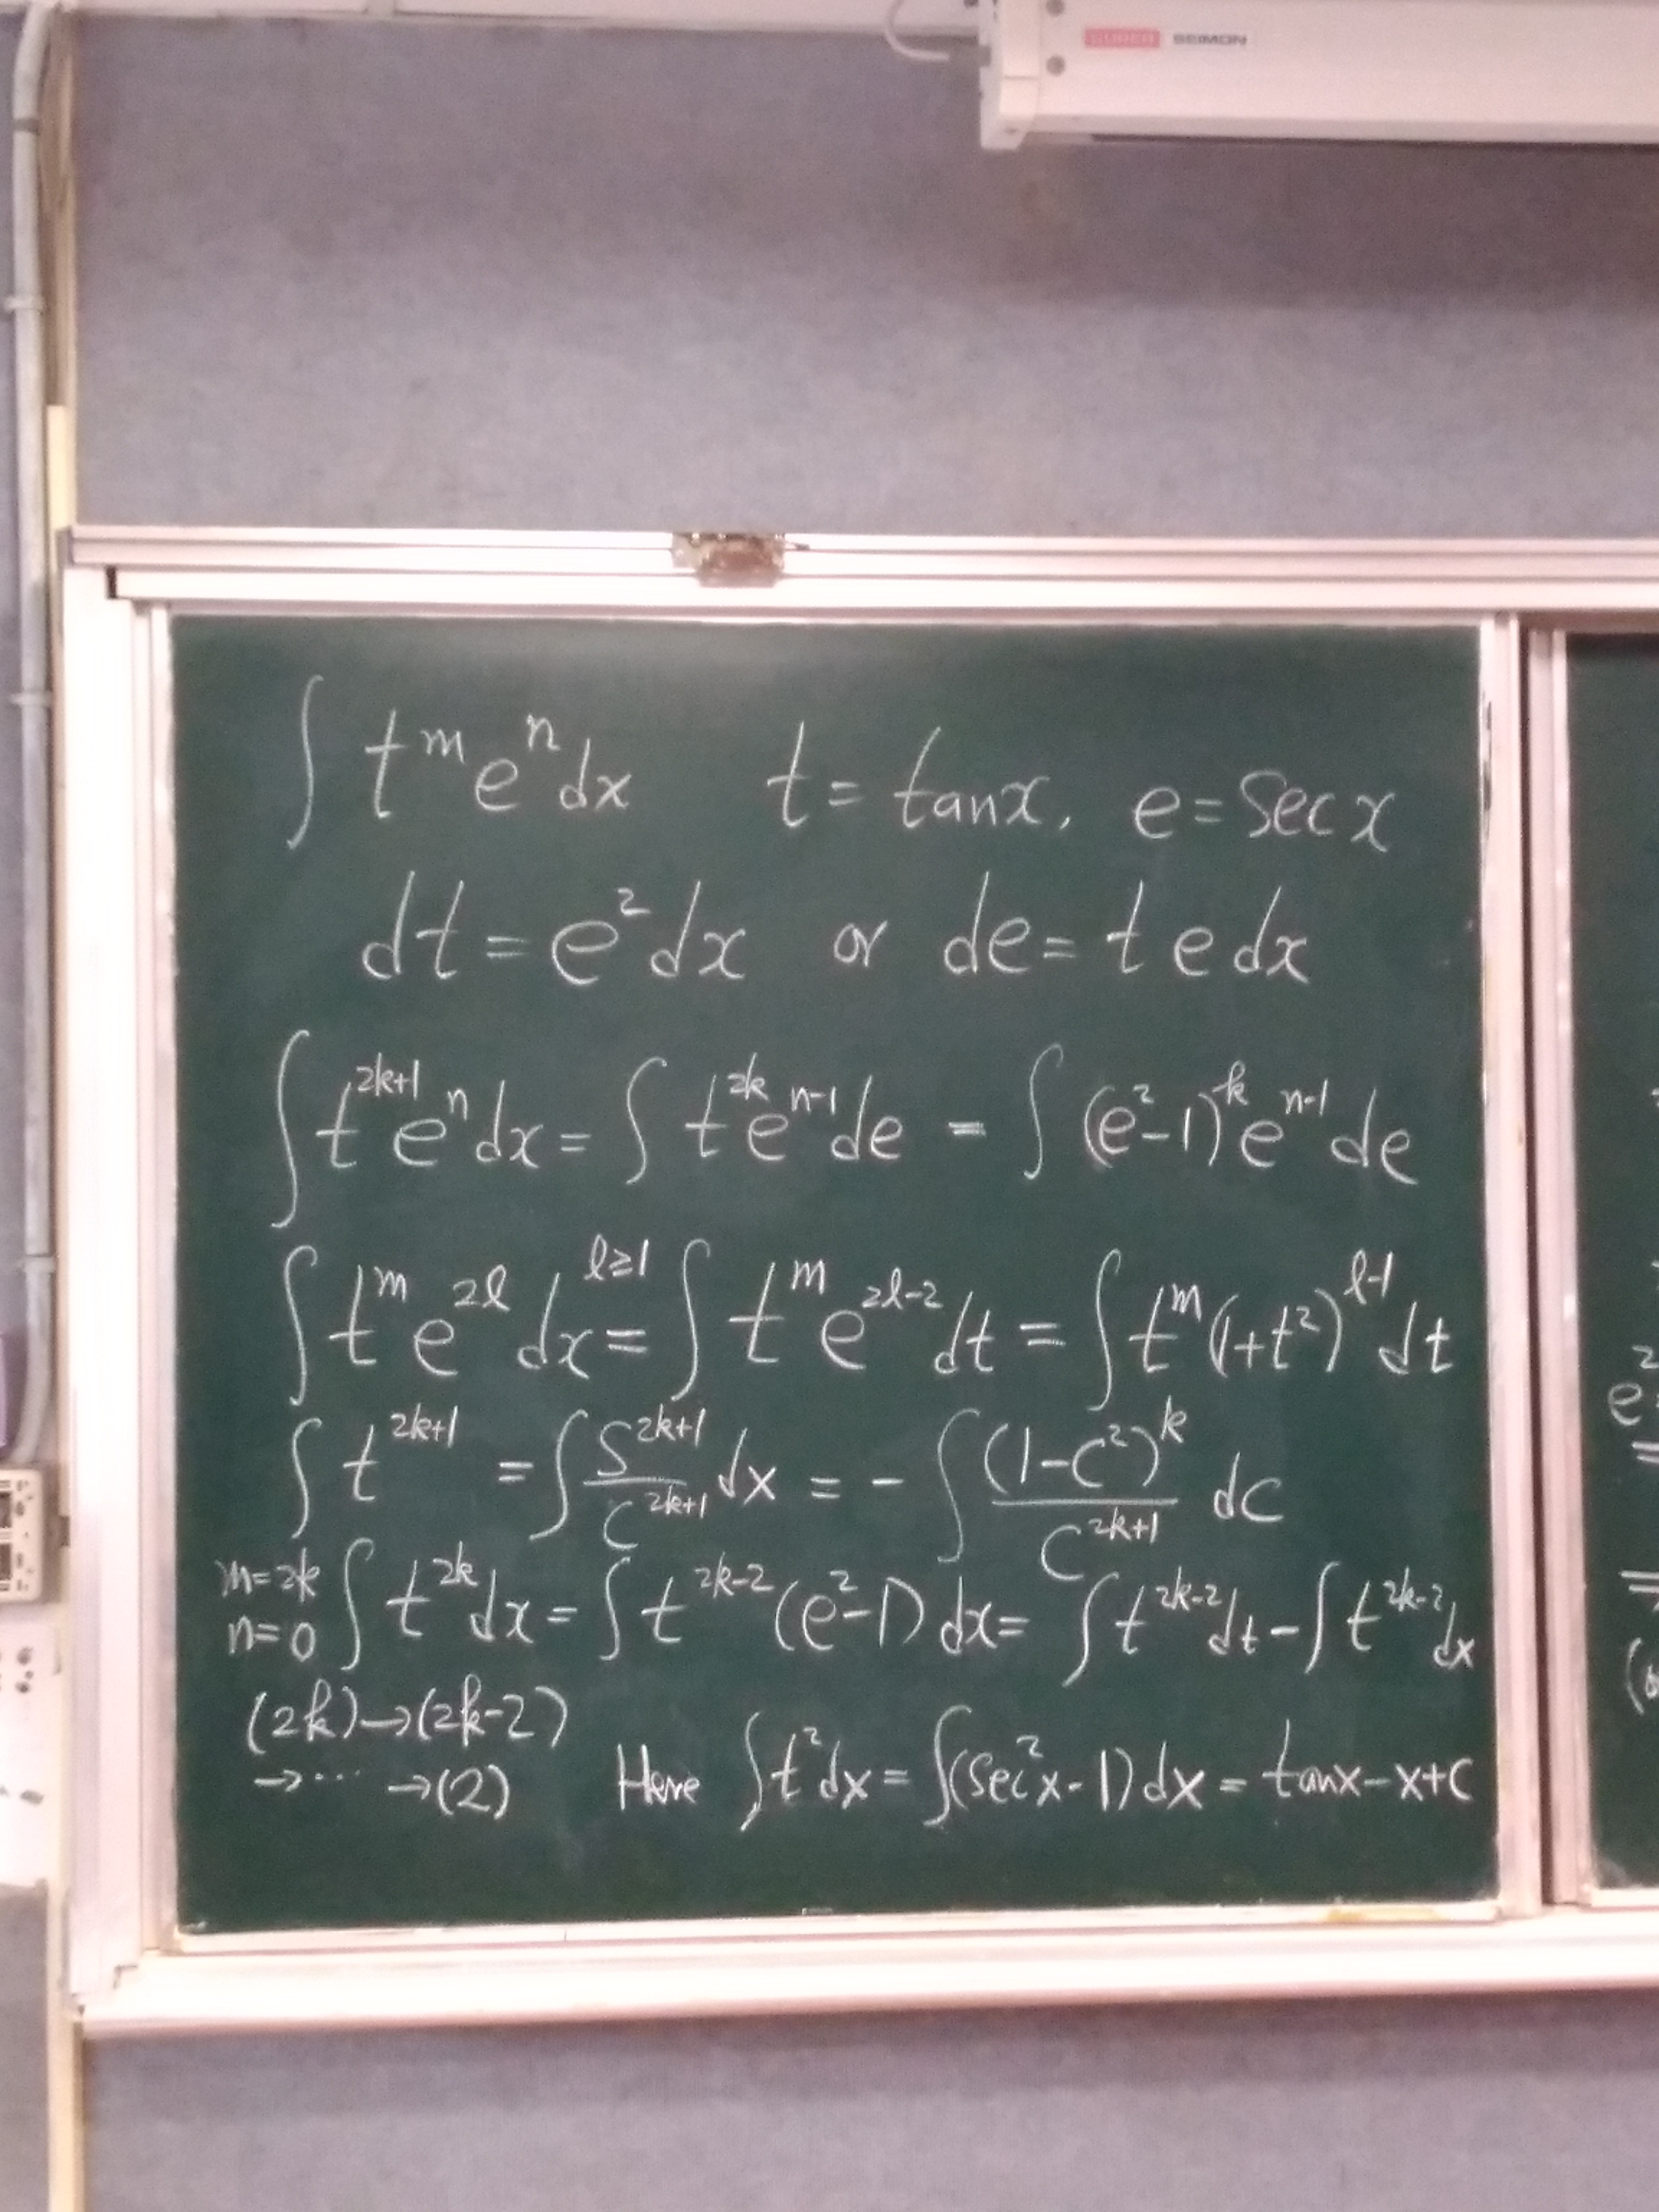 SUPER SEIMON
∫ t^m e^n dx    t = tan x,  e = sec x
dt = e² dx  or  de = t e dx
∫ t^{2k+1} e^n dx = ∫ t^{2k} e^{n-1} de = ∫ (e²-1)^k e^{n-1} de
∫ t^m e^{2l} dx =^{l≥1} ∫ t^m e^{2l-2} dt = ∫ t^m (1+t²)^{l-1} dt
∫ t^{2k+1} = ∫ S^{2k+1}/C^{2k+1} dx = - ∫ (1-C²)^k/C^{2k+1} dC
m=2k
n=0
∫ t^{2k} dx = ∫ t^{2k-2} (e²-1) dx = ∫ t^{2k-2} dt - ∫ t^{2k-2} dx
(2k)→(2k-2)
→··· →(2)
Here ∫ t² dx = ∫(sec²x-1) dx = tanx-x+C